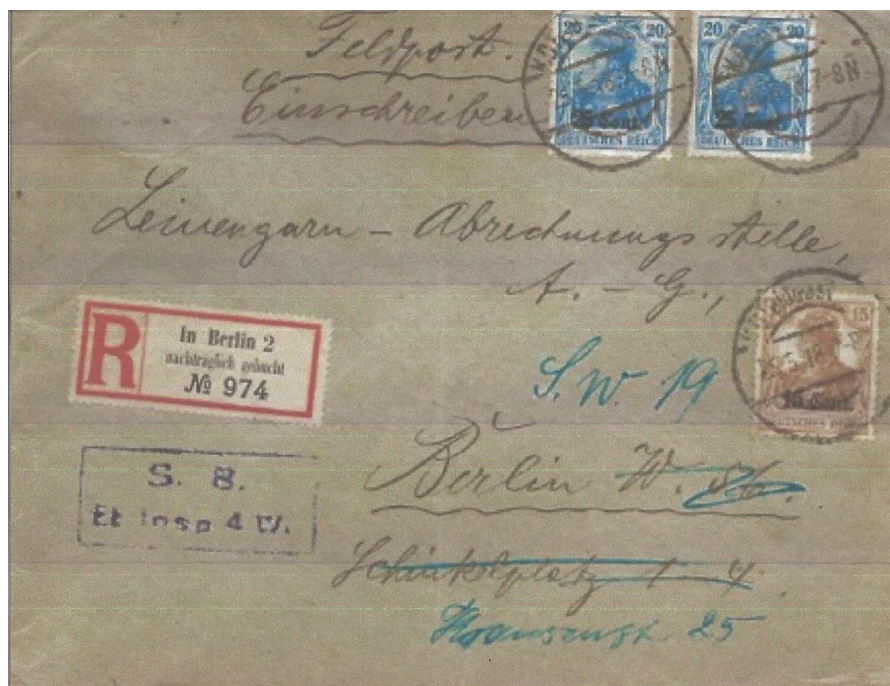 Feldpost.
Einschreiben
20 20
25 Cent.
DEUTSCHES REICH
20 20
25 Cent.
DEUTSCHES REICH
7-8N
Leinengarn - Abrechnungsstelle,
A. - G.,
15
15 Cent.
DEUTSCHES REICH
R
In Berlin 2
nachträglich gebucht
№ 974
S. W. 19
Berlin W. 56.
S. B.
Et Insp 4 W.
Schinkelplatz 1-4
25